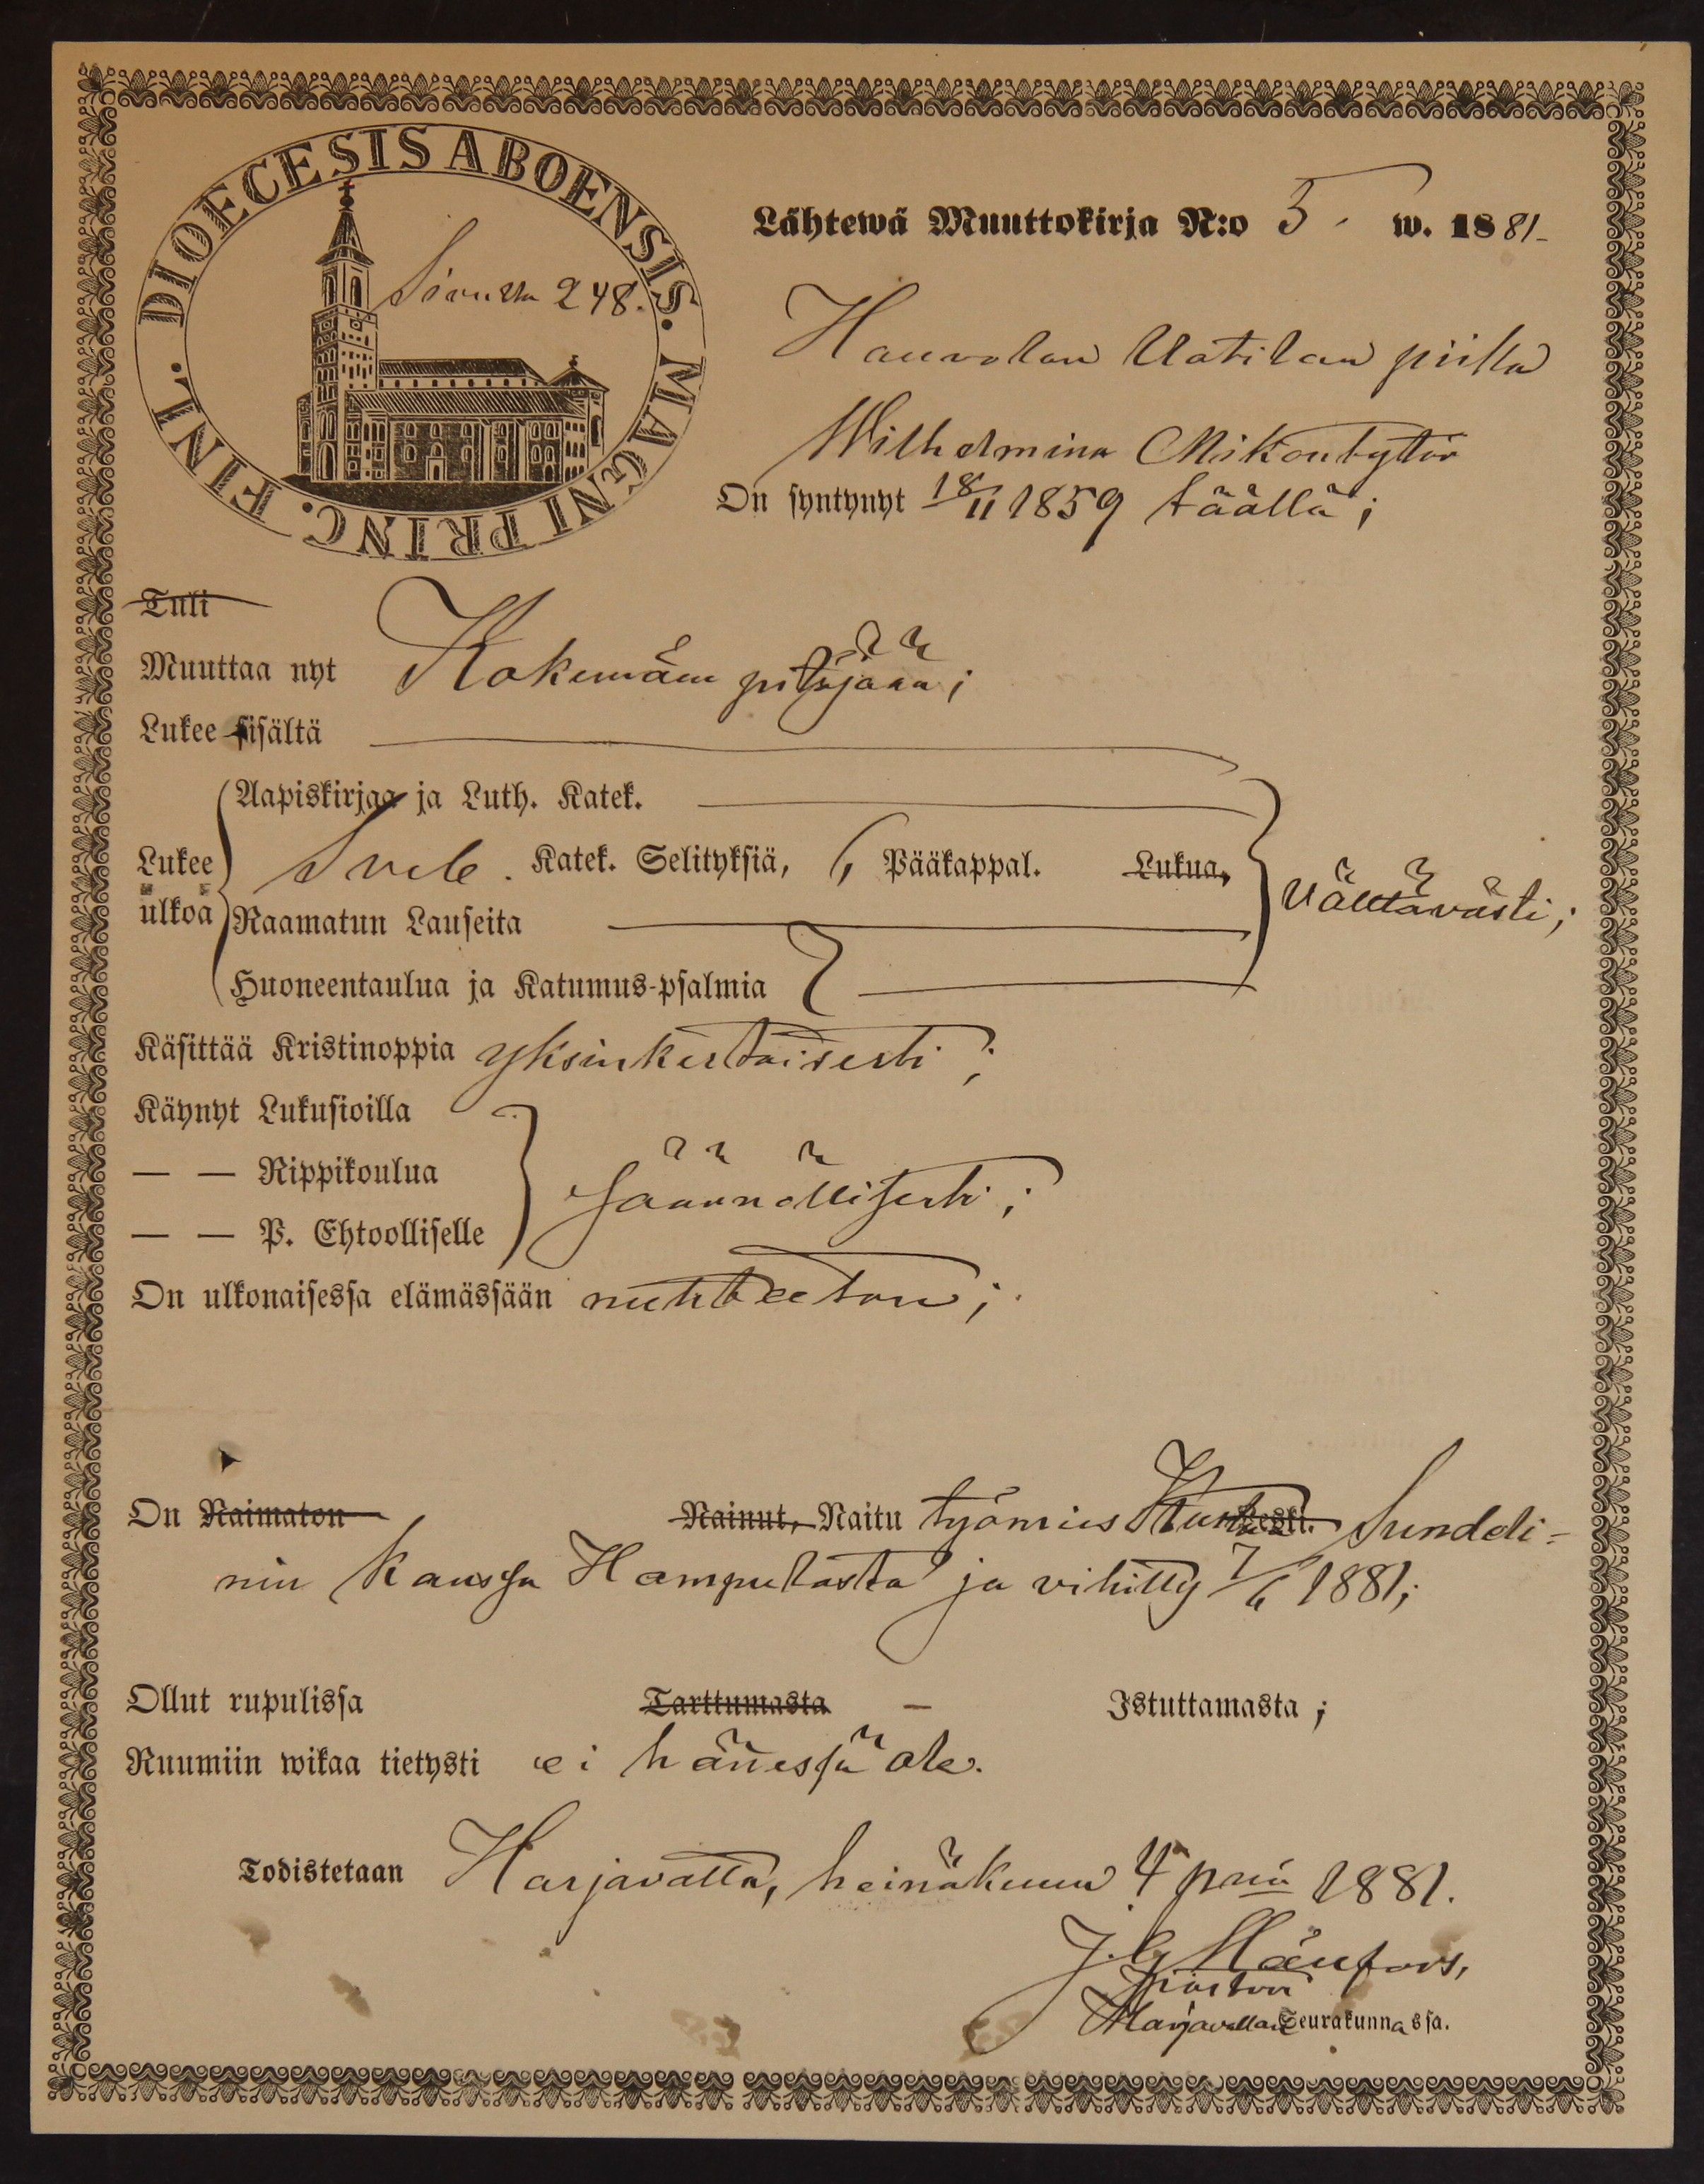 DIOECESIS ABOENSIS. MAGNI PRINC. FINL.
Sivulta 248.
Lähtewä Muuttokirja N:o 5. w. 1881
Haurolan Uotilan piika
Wilhelmina Mikontytär
On syntynyt 18/11 1859 täällä;
Tuli
Muuttaa nyt Kokemäen pitäjään;
Lukee sisältä
Aapiskirjaa ja Luth. Katek.
Lukee ulkoa
Sveb. Katek. Selityksiä, 6 Pääkappal. Lukua,
Raamatun Lauseita
Huoneentaulua ja Katumus-psalmia
Välttävästi;
Käsittää Kristinoppia yksinkertaisesti;
Käynyt Lukusioilla
— — Rippikoulua
— — P. Ehtoolliselle
säännöllisesti;
On ulkonaisessa elämässään nuhteeton;
On Naimaton Nainut, Naitu työmies Leski. Sundeli-
nin kanssa Hampulasta ja vihitty 7/6 1881;
Ollut rupulissa Tarttumasta – Istuttamasta;
Ruumiin wikaa tietysti ei hänessä ole.
Todistetaan Harjavalta, heinäkuun 4 pnä 1881.
J. G.
Harjavallan Seurakunnassa.